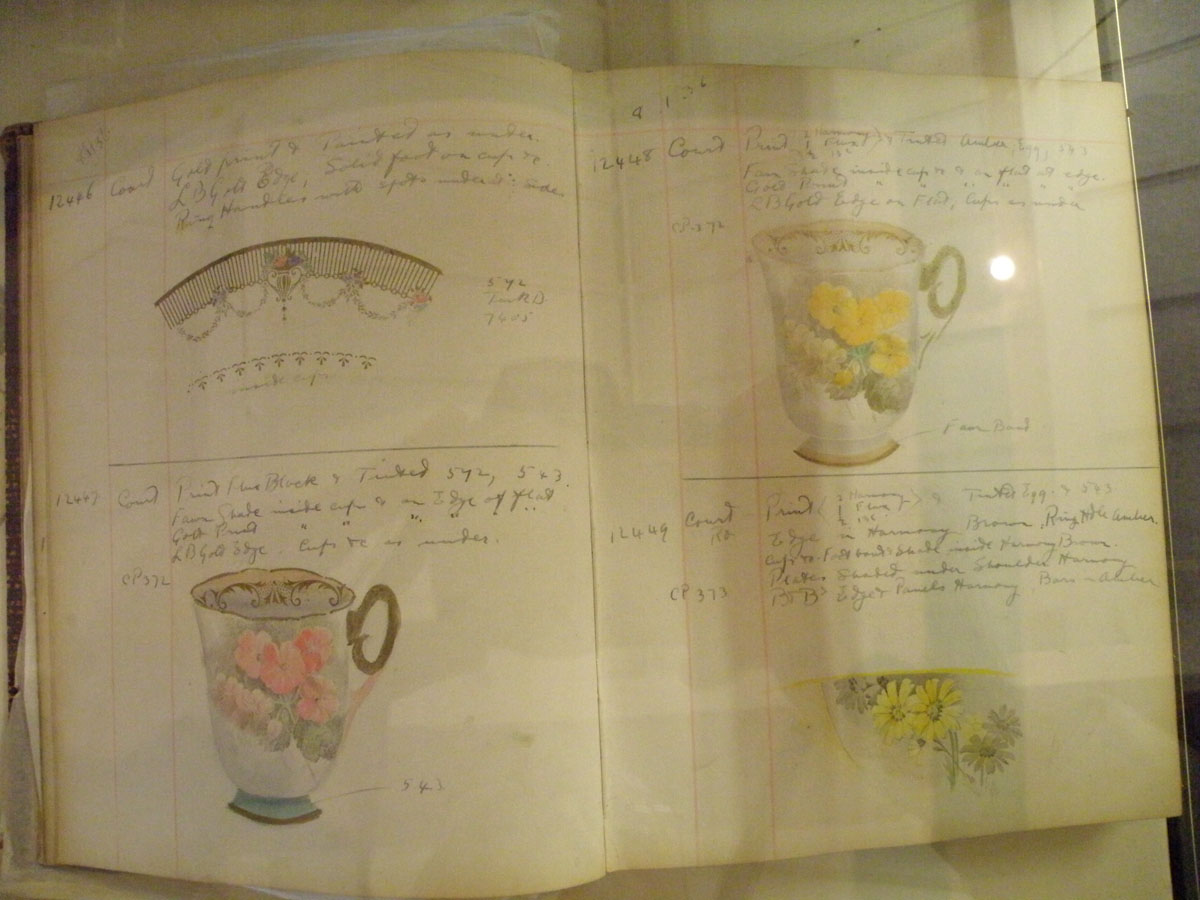 12446 Court Gold print & Painted as under.
LB Gold Edge, Solid foot on cup &c.
Ring Handles with spots under & sides
572
7405
inside cup
12447 Court Print Flux Black & Tinted 572, 543.
Fawn Shade inside cup & on Edge of flat
Gold Print " " " " "
LB Gold Edge. Cups &c as under.
CP372
543
12448 Court Print Harmony Flux & Tinted Amber, Egg, 543
Fawn shade inside cup & on flat at edge.
Gold Print " " " " "
LB Gold Edge on Flat, Cups as under
CP.372
Fawn Band
12449 Court Print Harmony Flux & Tinted Egg & 543
Edge in Harmony Brown, Ring Hdle Amber.
Cups Foot band & Shade inside Harmony Brown.
Plates Shaded under Shoulder Harmony
CP 373 B&B Edge & Panels Harmony Amber